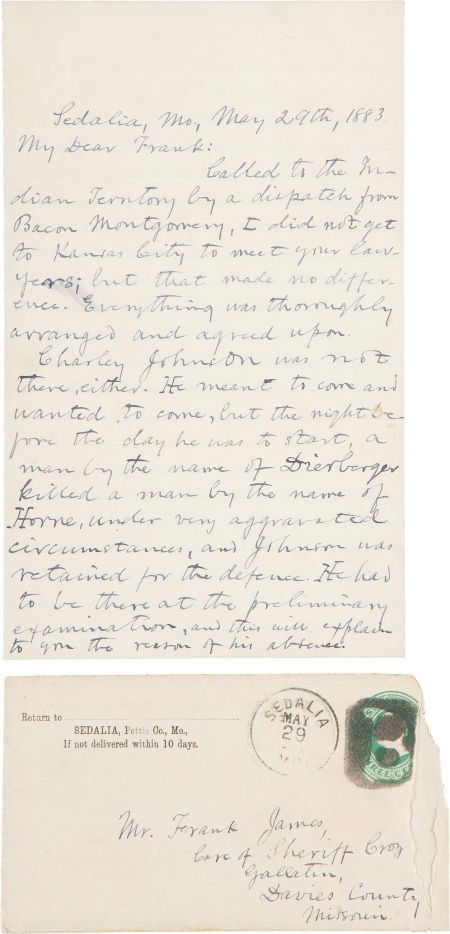 Sedalia, Mo., May 29th, 1883.
My Dear Frank:
Called to the In-
dian Territory by a dispatch from
Bacon Montgomery, I did not get
to Kansas City to meet your law-
yers; but that made no differ-
ence. Everything was thoroughly
arranged and agreed upon.
Charley Johnston was not
there, either. He meant to come and
wanted to come, but the night be-
fore the day he was to start, a
man by the name of Dierberger
killed a man by the name of
Horne, under very aggravated
circumstances, and Johnson was
retained for the defence. He had
to be there at the preliminary
examination, and this will explain
to you the reason of his absence.
Return to
SEDALIA, Pettis Co., Mo.,
If not delivered within 10 days.
SEDALIA
MAY
29
Mr. Frank James,
Care of Sheriff Croz
Gallatin,
Davies County
Missouri.